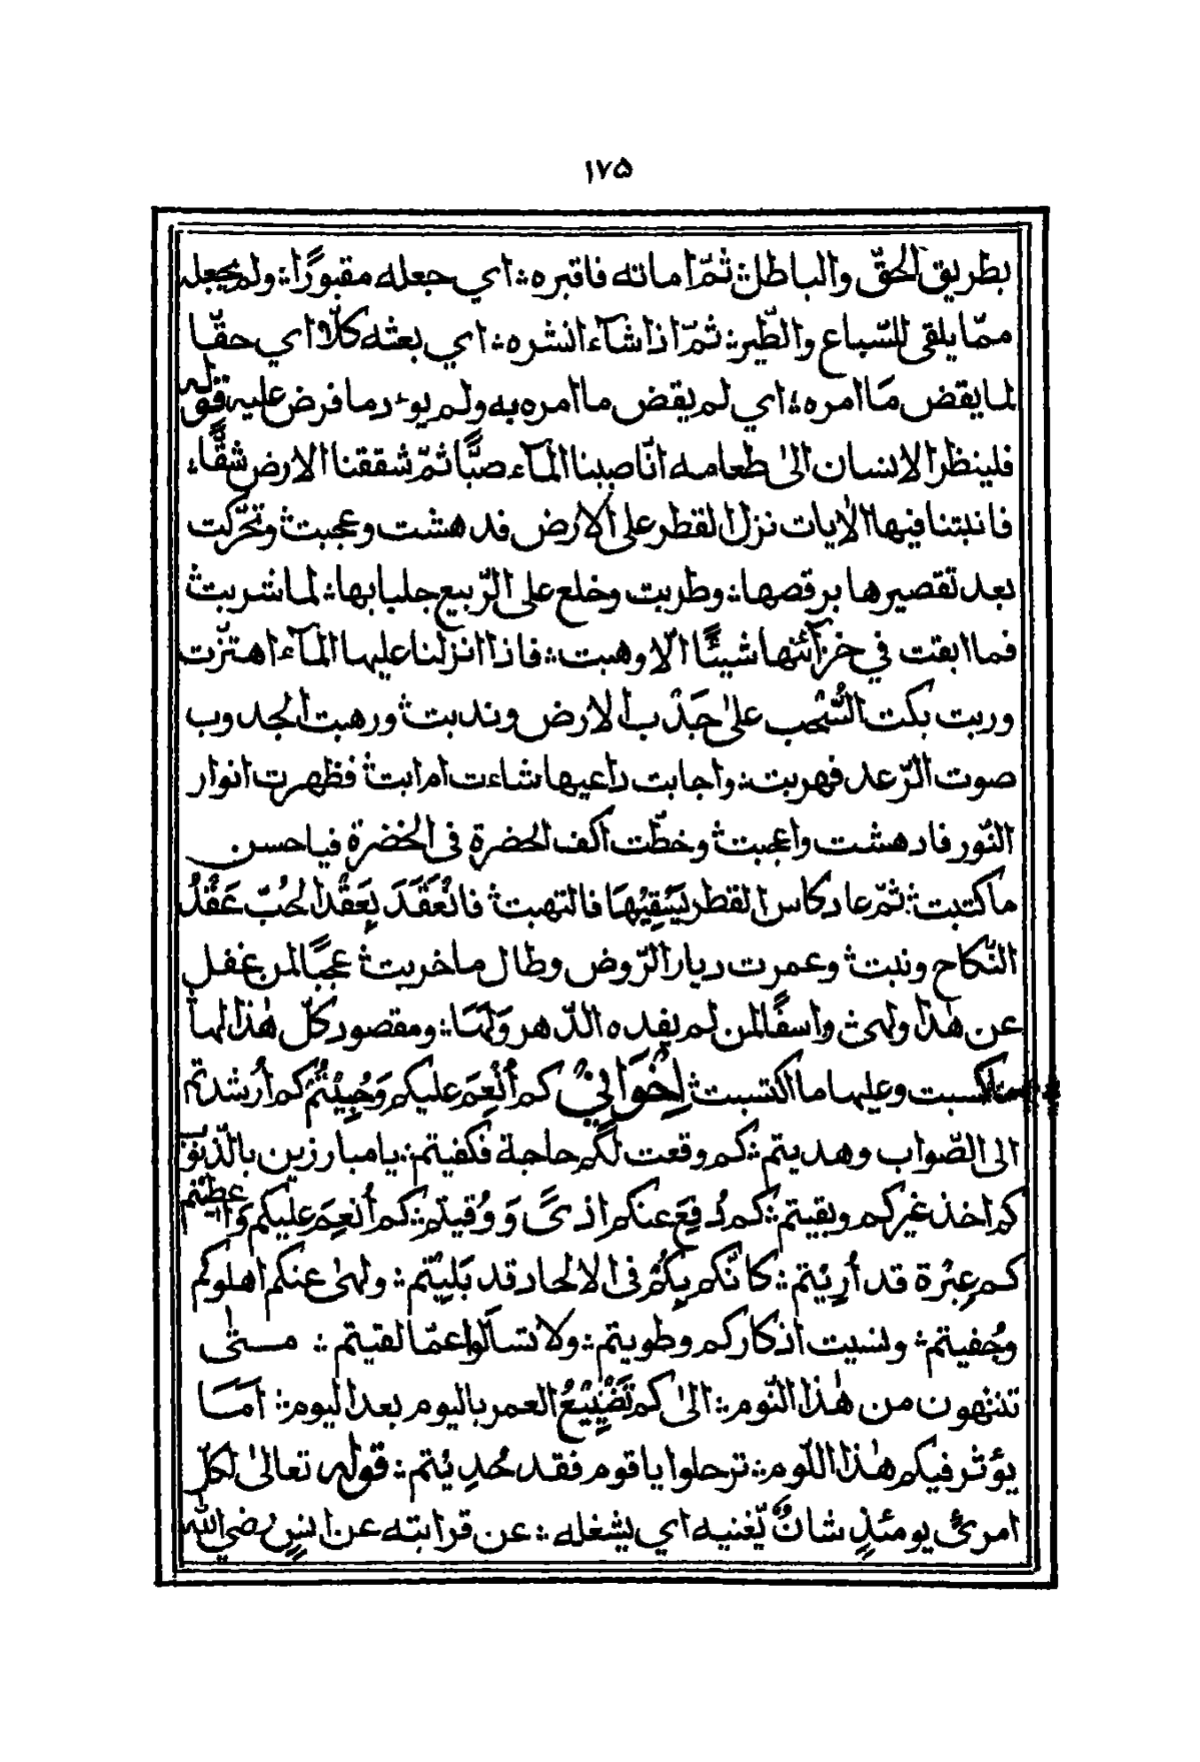 ۱۷۵
بطريق الحقّ والباطل؞ ثمّ اماته فاقبره؞ اي جعله مقبورًا؞ ولم يجعله
ممّا يلقى للسّباع والطّير؞ ثمّ اذا شآء انشره؞ اي بعثه كلّا اي حقّا
لما يقض مَا امره؞ اي لم يقض ما امره به ولم يوءد ما فرض عليه قوله
فلينظر الانسان الىٰ طعامه انّا صببنا المآء صبًّا ثمّ شققنا الارض شقًّا؞
فانبتنا فيها الاٰيات نزل القطر على الارض فدهشت وعجبت؞ وتحرّكت
بعد تقصيرها برقصها؞ وطربت وخلع على الرّبيع جلبابها؞ لما شربت؞
فما ابقت في خزآئنها شيئًا الّا وهبت؞ فاذا انزلنا عليها المآء اهتزّت
وربت بكت السُّحْب علىٰ جَدْب الارض وندبت؞ ورهبت الجدوب
صوت الرّعد فهربت؞ واجابت داعيها شاءت ام ابت؞ فظهرت انوار
النّور فادهشت واعجبت؞ وخطّت اكف الحضرة فى الخضرة فيا حسن
ما كتبت؞ ثمّ عاد كاس القطر يَسْقِيْهَا فالتهبت؞ فانْعَقَدَ بِعَقْدِ الحُبّ عَقْدُ
النّكاح ونبت؞ وعمرت ديار الرّوض وطال ما خربت؞ عجبًا لمن غفل
عن هٰذا ولهى؞ واسفًا لمن لم يفده الدّهر وَلَهَا؞ ومقصود كلّ هٰذا لها
ما كسبت وعليها ما اكتسبت؞ اِخْوَانِيْ كم أُنْعِمَ عليكم وَحُبِيْتُمْ كم أُرشدتم
الى الصّواب وهديتم؞ كم وقعت لكم حاجة فكفيتم؞ يا مبارزين بالذّنوب
كم اخذ غيركم وبقيتم؞ كم دُفِعَ عنكم اذىً وَوُقيتم؞ كم أُنعِمَ عليكم وَاعطيتم
كم عِبْرة قد أُرِيْتم؞ كانّكم بِكُمْ فى الالحاد قد بَلِيْتم؞ ولهىٰ عنكم اهلوكم
وجُفيتم؞ ونسيت اذكاركم وطويتم؞ ولا تسألوا عمّا لقيتم؞ متىٰ
تنتهون من هٰذا النّوم؞ الىٰ كم تَضْيِيْعُ العمر باليوم بعد اليوم؞ اَمَا
يؤثر فيكم هٰذا اللّوم؞ ترحلوا يا قوم فقد حُدِيْتم؞ قوله تعالىٰ لكلّ
امرئ يومئذٍ شانٌ يّغنيه اي يشغله؞ عن قرابته عن انسٍ رضي اللّٰه